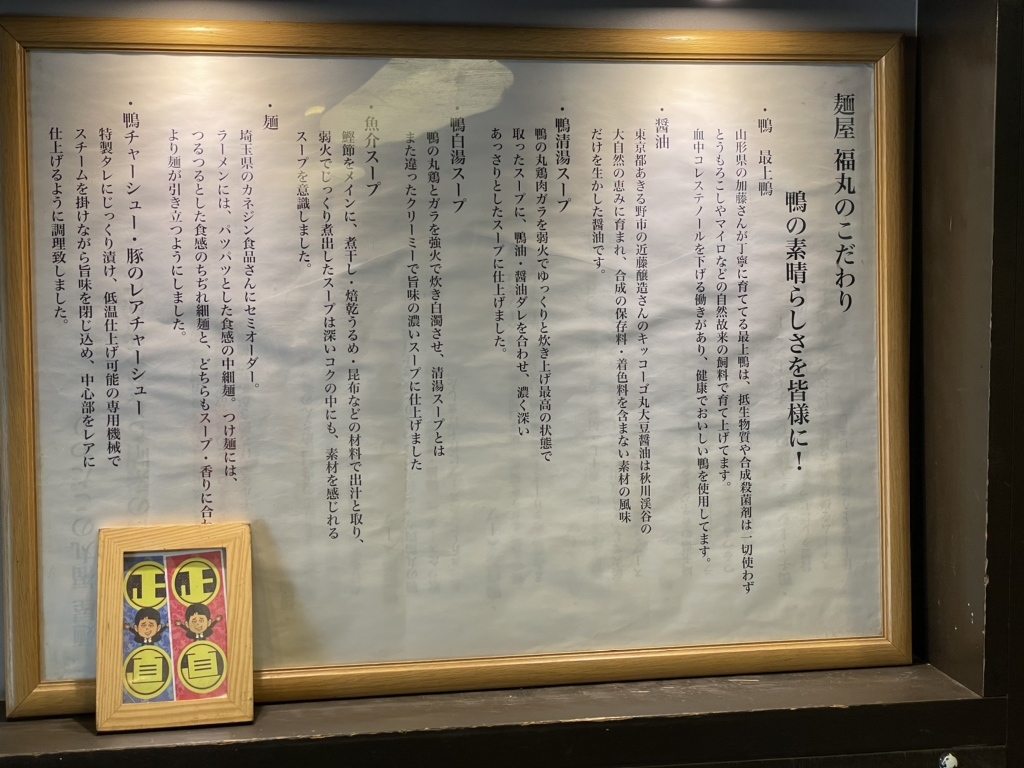 麺屋 福丸のこだわり
鴨の素晴らしさを皆様に!
・鴨 最上鴨
山形県の加藤さんが丁寧に育ててる最上鴨は、抵生物質や合成殺菌剤は一切使わず
とうもろこしやマイロなどの自然故来の飼料で育て上げてます。
血中コレステノールを下げる働きがあり、健康でおいしい鴨を使用してます。
・醤油
東京都あきる野市の近藤醸造さんのキッコーゴ丸大豆醤油は秋川渓谷の
大自然の恵みに育まれ、合成の保存料・着色料を含まない素材の風味
だけを生かした醤油です。
・鴨清湯スープ
鴨の丸鶏肉ガラを弱火でゆっくりと炊き上げ最高の状態で
取ったスープに、鴨油・醤油ダレを合わせ、濃く深い
あっさりとしたスープに仕上げました。
・鴨白湯スープ
鴨の丸鶏とガラを強火で炊き白濁させ、清湯スープとは
また違ったクリーミーで旨味の濃いスープに仕上げました
・魚介スープ
鰹節をメインに、煮干し・焙乾うるめ・昆布などの材料で出汁と取り、
弱火でじっくり煮出したスープは深いコクの中にも、素材を感じれる
スープを意識しました。
・麺
埼玉県のカネジン食品さんにセミオーダー。
ラーメンには、パツパツとした食感の中細麺。つけ麺には、
つるつるとした食感のちぢれ細麺と、どちらもスープ・香りに合わ
より麺が引き立つようにしました。
・鴨チャーシュー・豚のレアチャーシュー
特製タレにじっくり漬け、低温仕上げ可能の専用機械で
スチームを掛けながら旨味を閉じ込め、中心部をレアに
仕上げるように調理致しました。
正直
正直